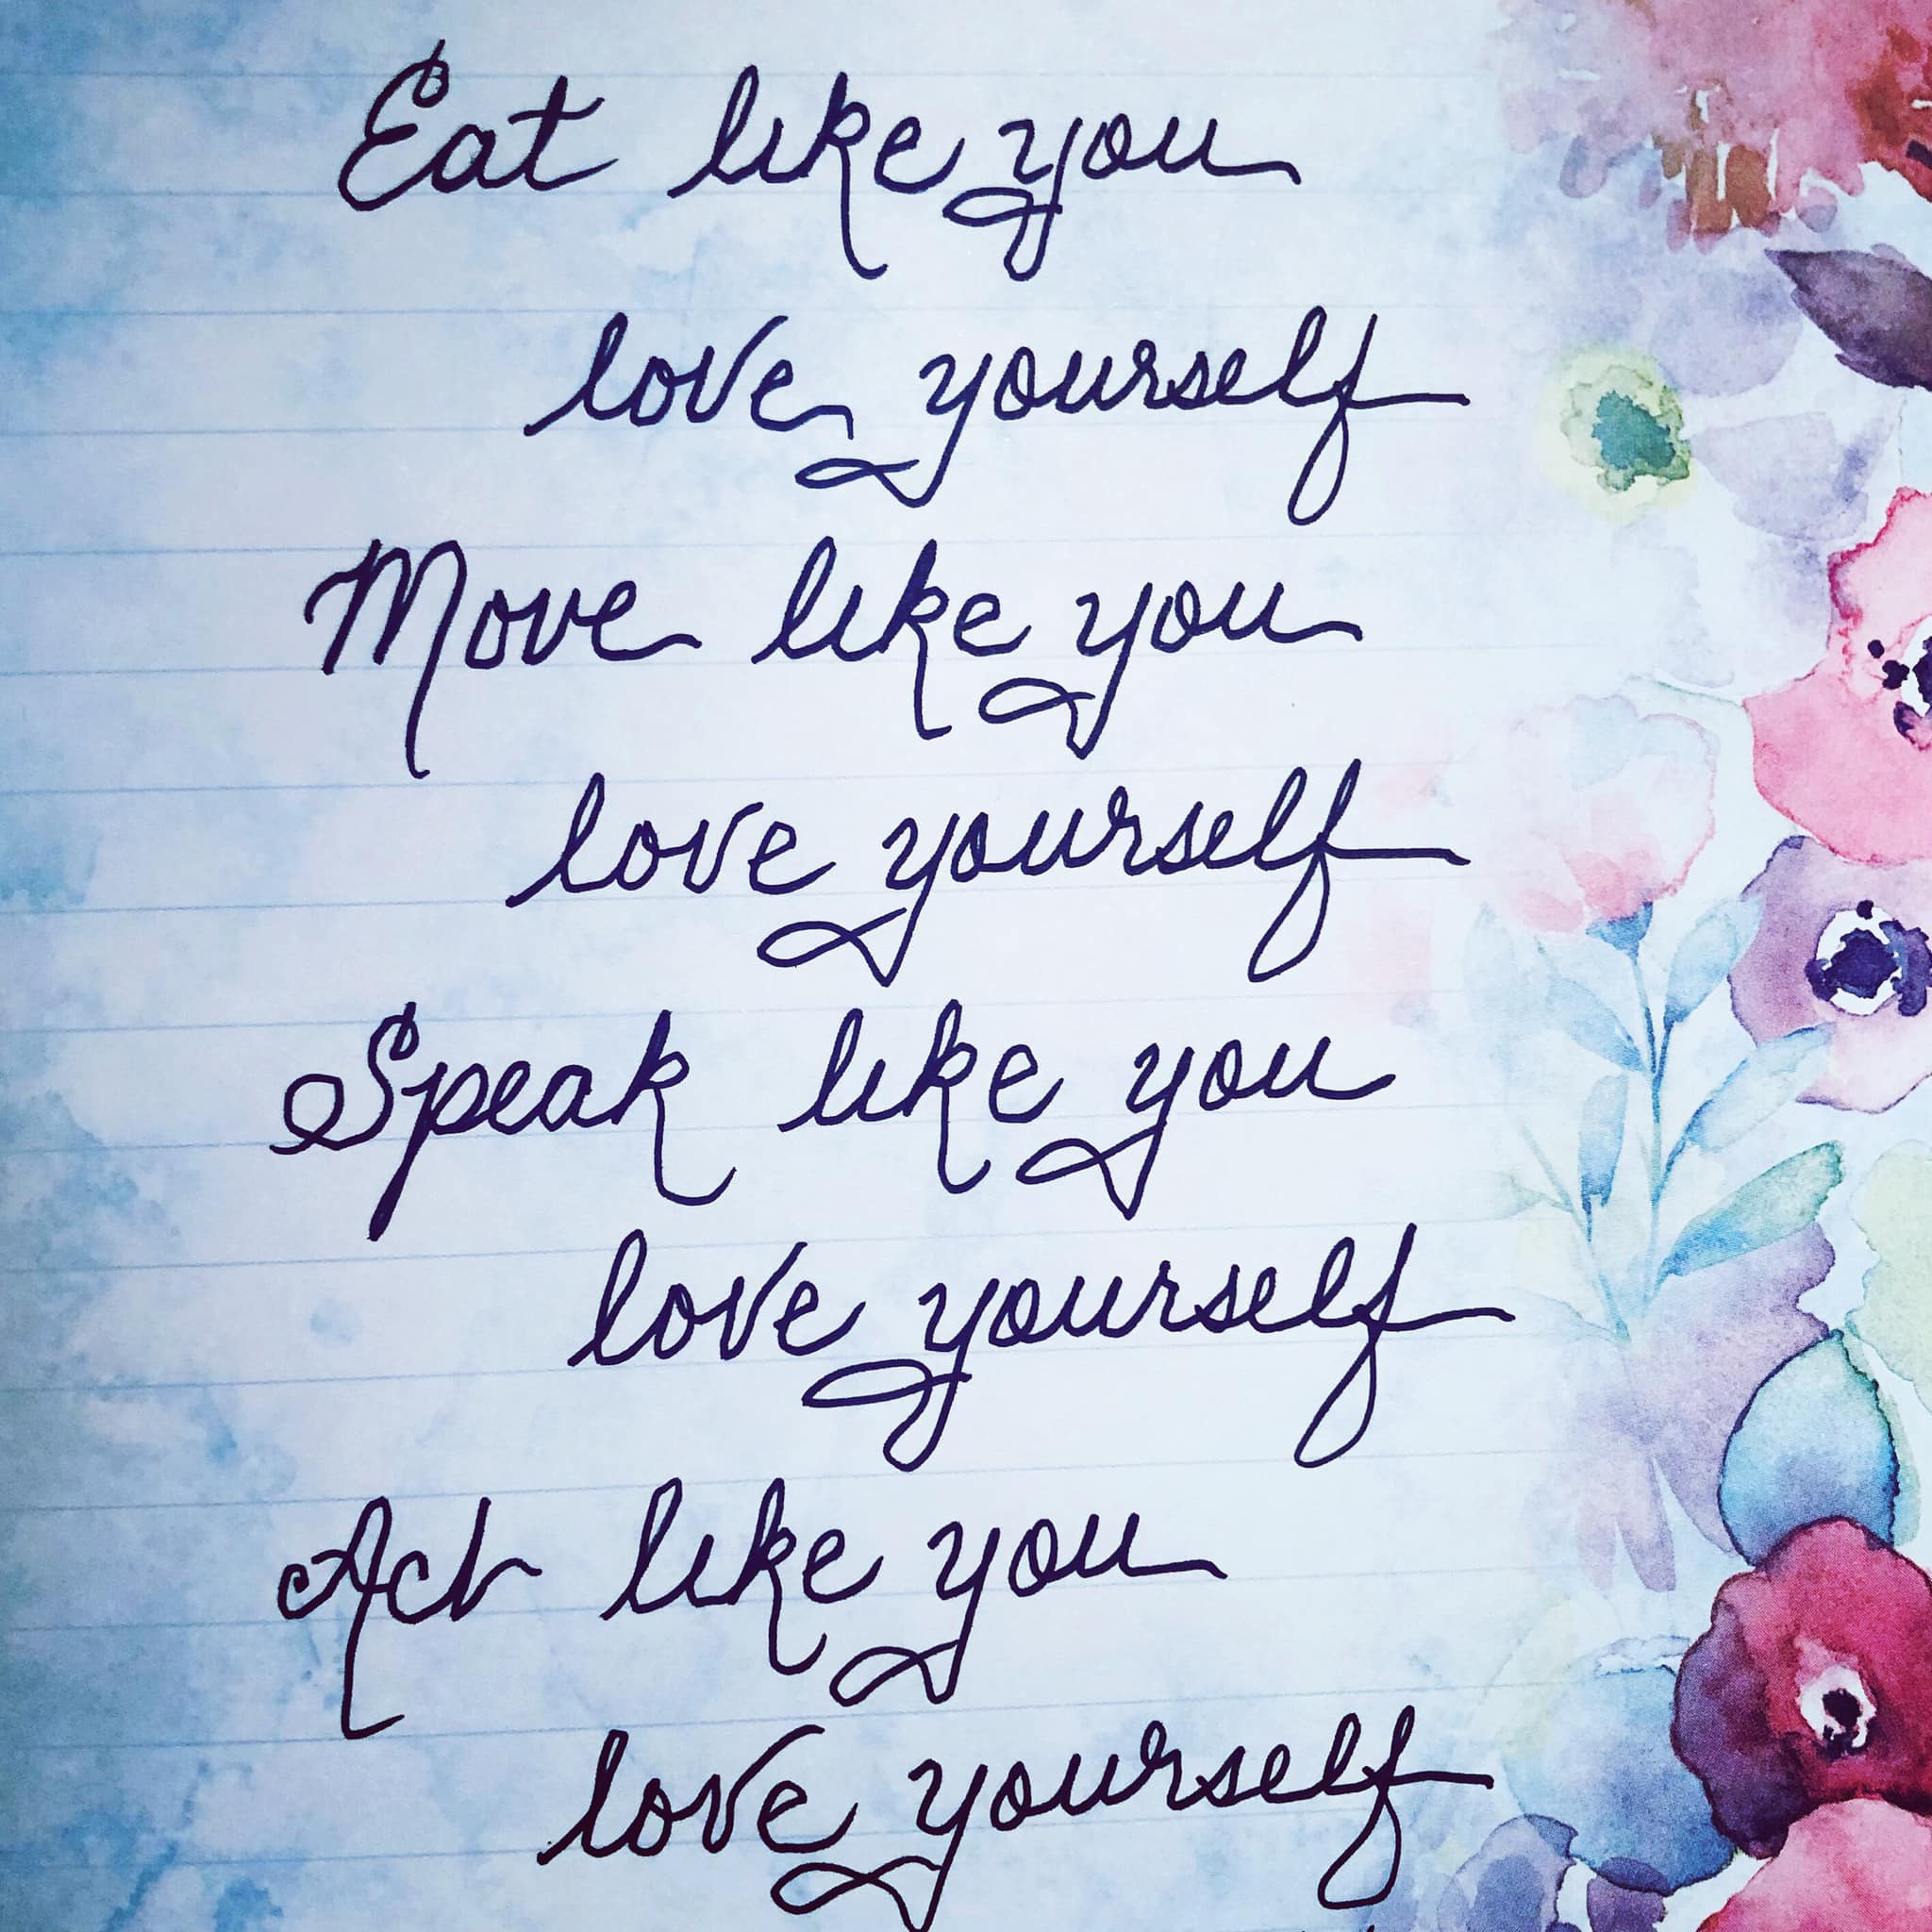 Eat like you
love yourself
Move like you
love yourself
Speak like you
love yourself
Act like you
love yourself